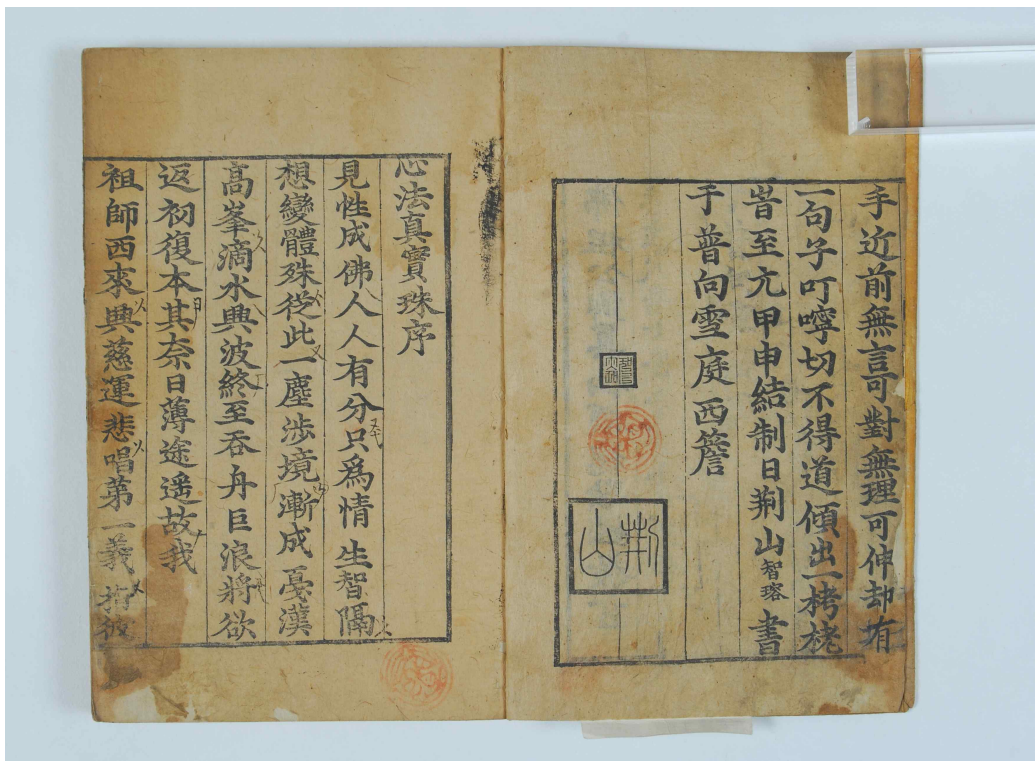 手近前無言可對無理可伸却有
一句子叮嚀切不得道傾出一栲栳
旹至亢甲申結制日荆山智瑢書
于普向雪庭西簷
荆山
心法真實珠序
見性成佛人人有分只爲情生智隔
想變體殊從此一塵涉境漸成憂漢
高峯滴水興波終至吞舟巨浪將欲
返初復本其奈日薄途遥故我
祖師西來興慈運悲唱第一義指